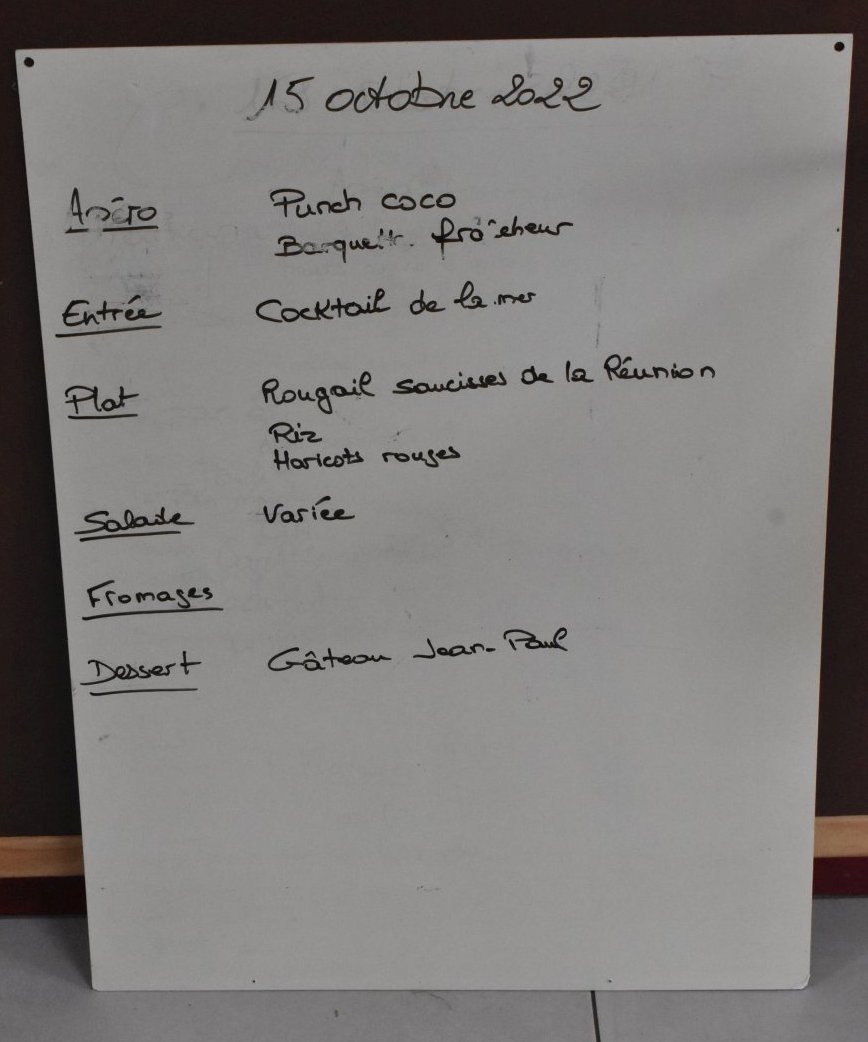 15 octobre 2022
Apéro Punch coco
Barquett. fraîcheur
Entrée Cocktail de la mer
Plat Rougail saucisses de la Réunion
Riz
Haricots rouges
Salade Variée
Fromages
Dessert Gâteau Jean-Paul